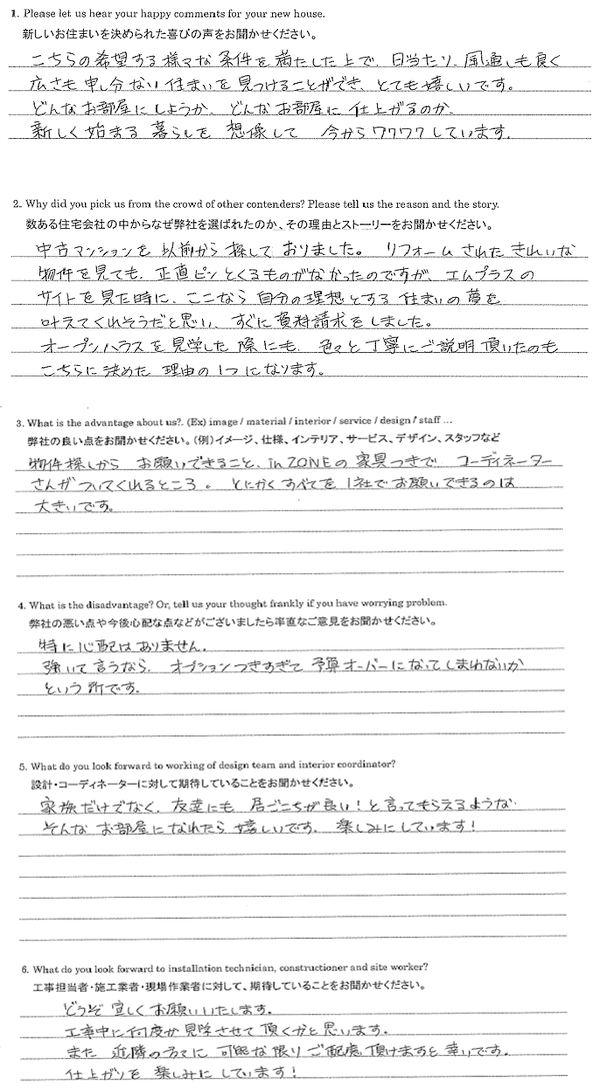 1. Please let us hear your happy comments for your new house.
新しいお住まいを決められた喜びの声をお聞かせください。
こちらの希望する様々な条件を満たした上で、日当たり、風通しも良く
広さも申し分ない住まいを見つけることができ、とても嬉しいです。
どんなお部屋にしようか、どんなお部屋に仕上がるのか、
新しく始まる暮らしを想像して 今からワクワクしています。
2. Why did you pick us from the crowd of other contenders? Please tell us the reason and the story.
数ある住宅会社の中からなぜ弊社を選ばれたのか、その理由とストーリーをお聞かせください。
中古マンションを以前から探しておりました。 リフォームされたきれいな
物件を見ても、正直ピンとくるものがなかったのですが、エムプラスの
サイトを見た時に、ここなら自分の理想とする住まいの夢を
叶えてくれそうだと思い、すぐに資料請求をしました。
オープンハウスを見学した際にも、色々と丁寧にご説明頂いたのも
こちらに決めた理由の1つになります。
3. What is the advantage about us?. (Ex) image / material / interior / service / design / staff ...
弊社の良い点をお聞かせください。(例)イメージ、仕様、インテリア、サービス、デザイン、スタッフなど
物件探しから お願いできること、in ZONEの家具つきで コーディネーター
さんがついてくれるところ。 とにかくすべてを1社でお願いできるのは
大きいです。
4. What is the disadvantage? Or, tell us your thought frankly if you have worrying problem.
弊社の悪い点や今後心配な点などがございましたら率直なご意見をお聞かせください。
特に心配はありません。
強いて言うなら、オプションつきすぎて予算オーバーになってしまわないか
という所です。
5. What do you look forward to working of design team and interior coordinator?
設計・コーディネーターに対して期待していることをお聞かせください。
家族だけでなく、友達にも 居ごこちが良い!と言ってもらえるような
そんなお部屋になれたら嬉しいです。 楽しみにしています!
6. What do you look forward to installation technician, constructioner and site worker?
工事担当者・施工業者・現場作業者に対して、期待していることをお聞かせください。
どうぞ宜しくお願いいたします。
工事中に何度か見学させて頂くかと思います。
また 近隣の方々に可能な限りご配慮頂けますと幸いです。
仕上がりを楽しみにしています!